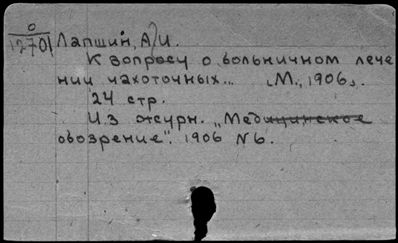 0
12701
Лапшин, А. И.
К вопросу о больничном лече
нии чахоточных... [М., 1906].
24 стр.
Из журн. "Медицинское
обозрение". 1906 №6.